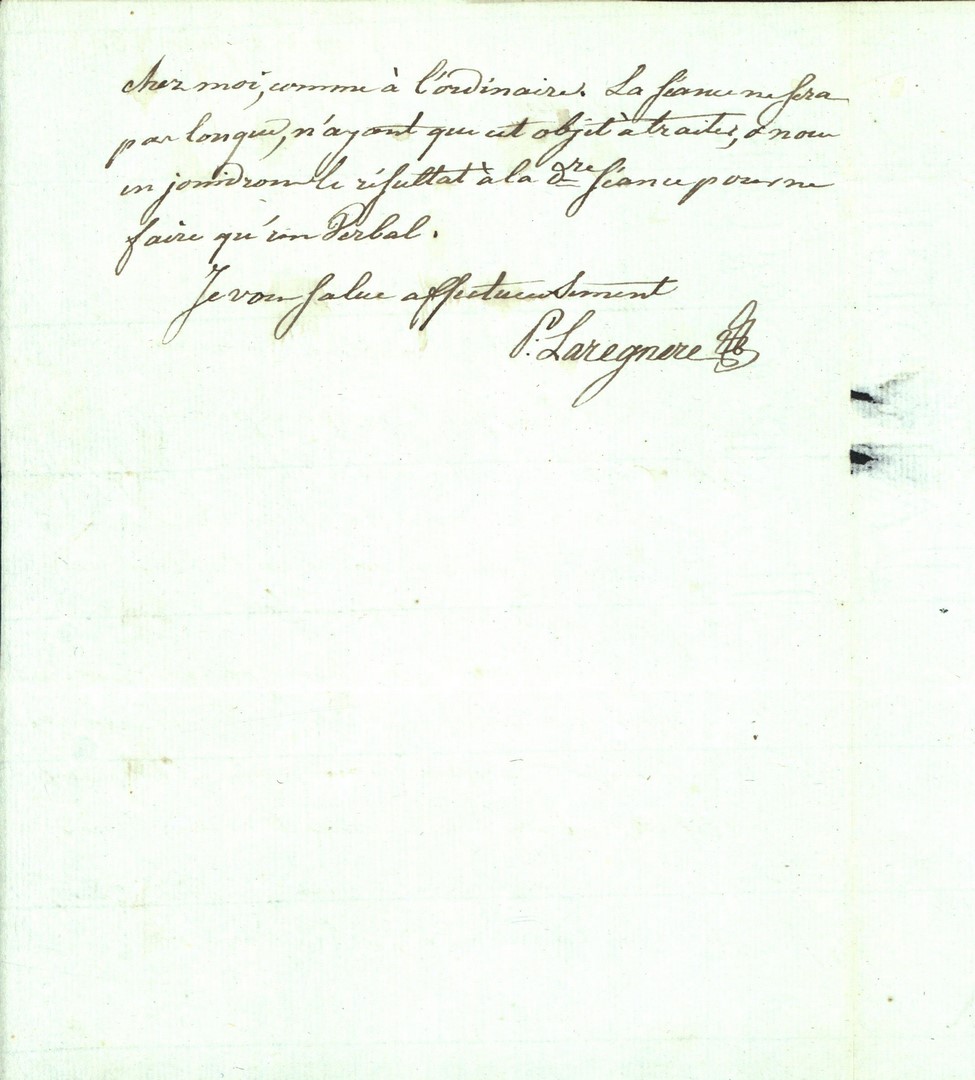 chez moi, comme à l'ordinaire. La séance ne sera
pas longue, n'ayant que cet objet à traiter, & nous
en joindrons le résultat à la dre séance pour ne
faire qu'un Verbal.
Je vous salue affectueusement
P. Laregnere